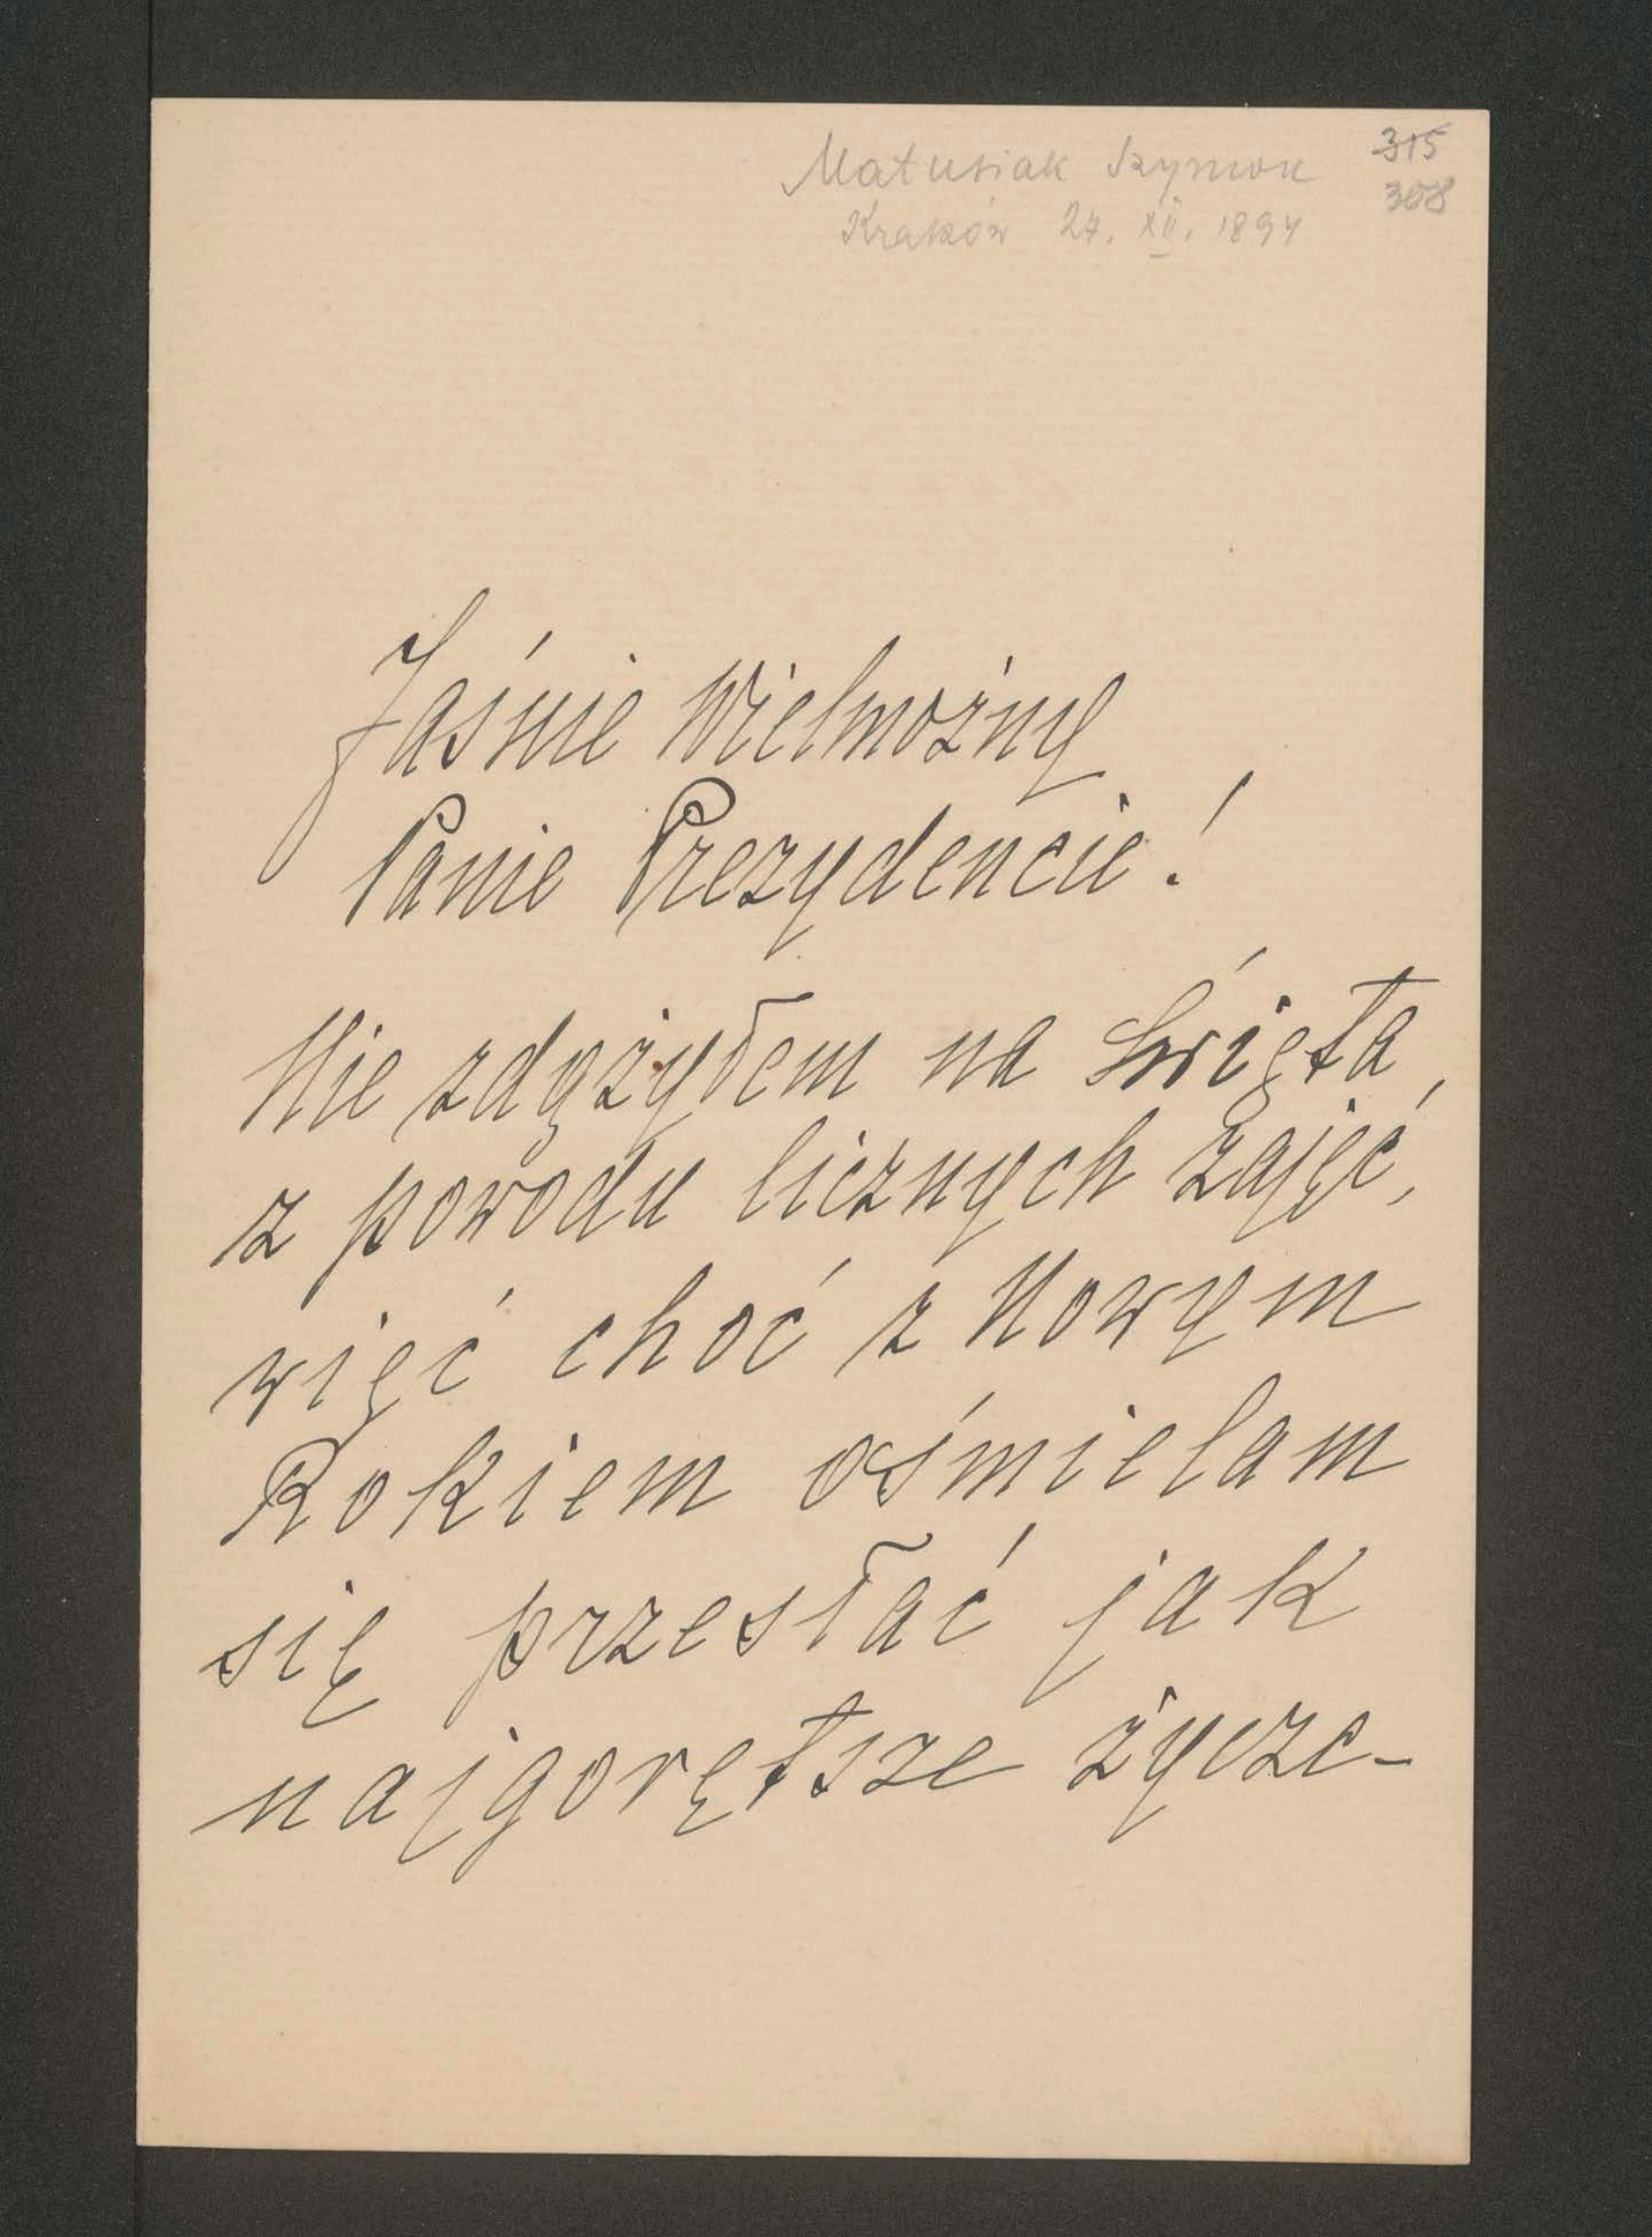 Matusiak Szymon
315
Kraków 27. XII. 1894
308
Jaśnie Wielmożny
Panie Prezydencie!
Nie zdążyłem na Święta,
z powodu licznych zajęć,
więć choć z Nowym
Rokiem ośmielam
się przesłać jak
najgorętsze życze-